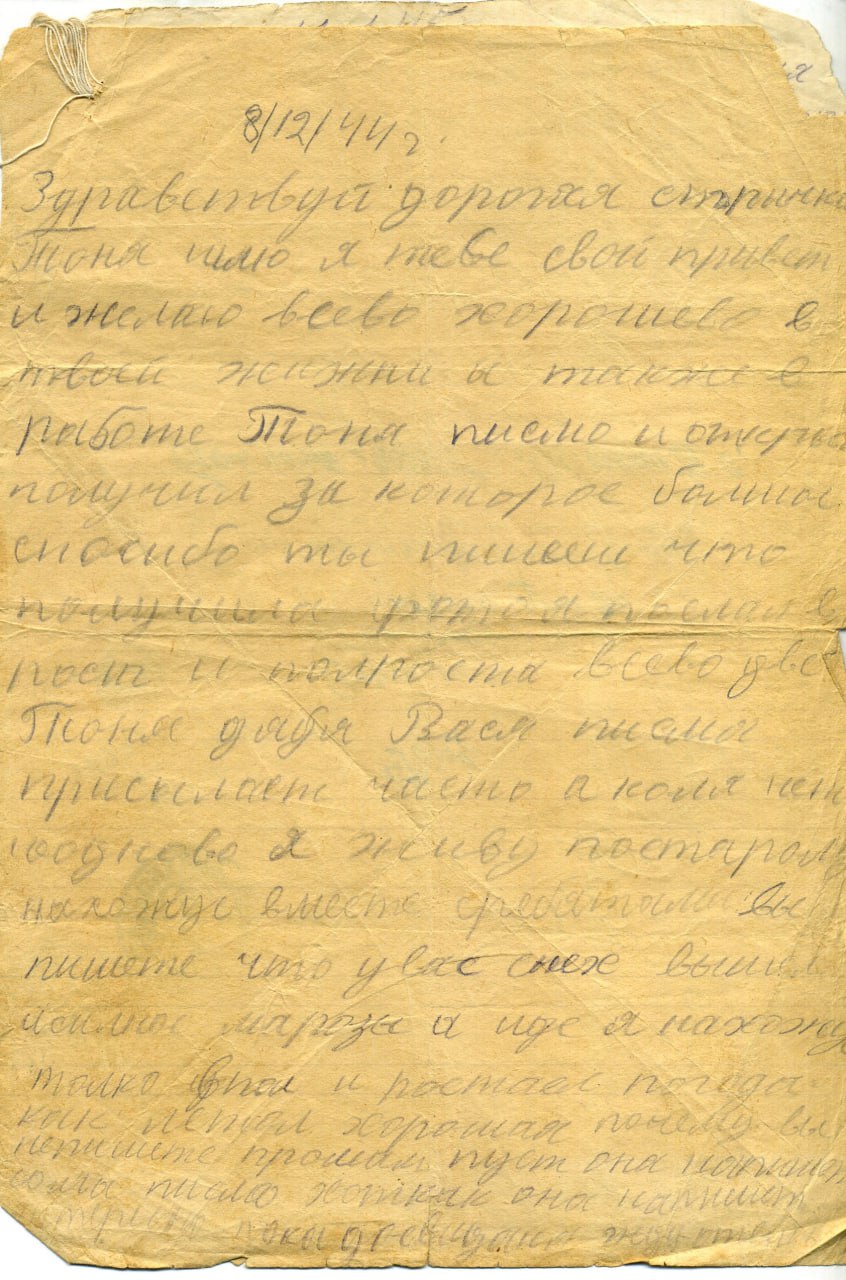 8/12/44 г.
Здравствуй дорогая
Тоня шлю я тебе свой привет
и желаю всево хорошево в
твоей жизни и также в
работе Тоня писмо и
получил за которое болшое
спосибо ты пишеш что
получила фото я послал в
рост и полроста всево две
Тоня дядя Вася писма
присылает часто а коля нет
я живу постарому
нахожус вместе сребятами вы
пишете что увас снех вышел
исилные марозы а иде я нахожус
толко впал и ростаел погода
как летом хорошая почему вы
непишете пуст она напишет
сама писмо хоткак она напишет
пока досвидания жду